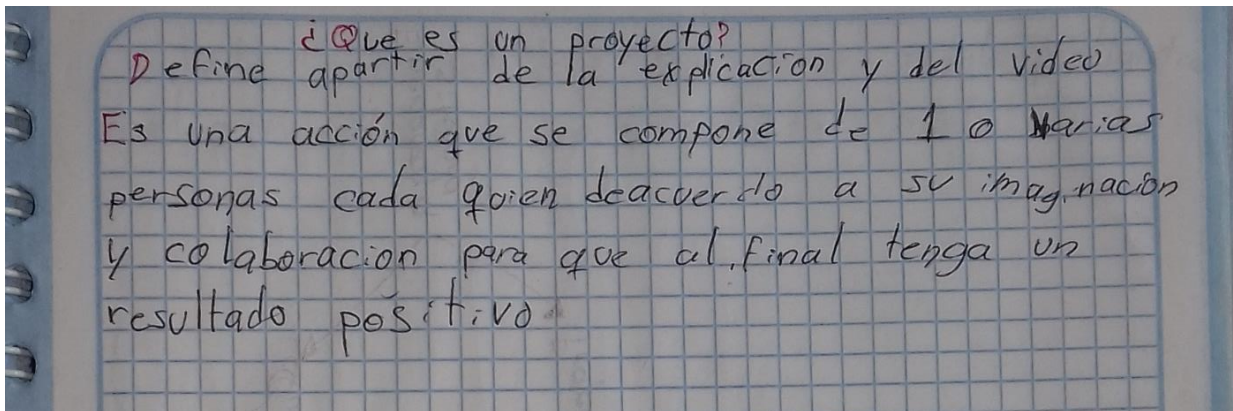 ¿Que es un proyecto?
Define apartir de la explicacion y del video
Es una acción que se compone de 1 o varias
personas cada quien deacuerdo a su imaginacion
y colaboracion para que al final tenga un
resultado positivo